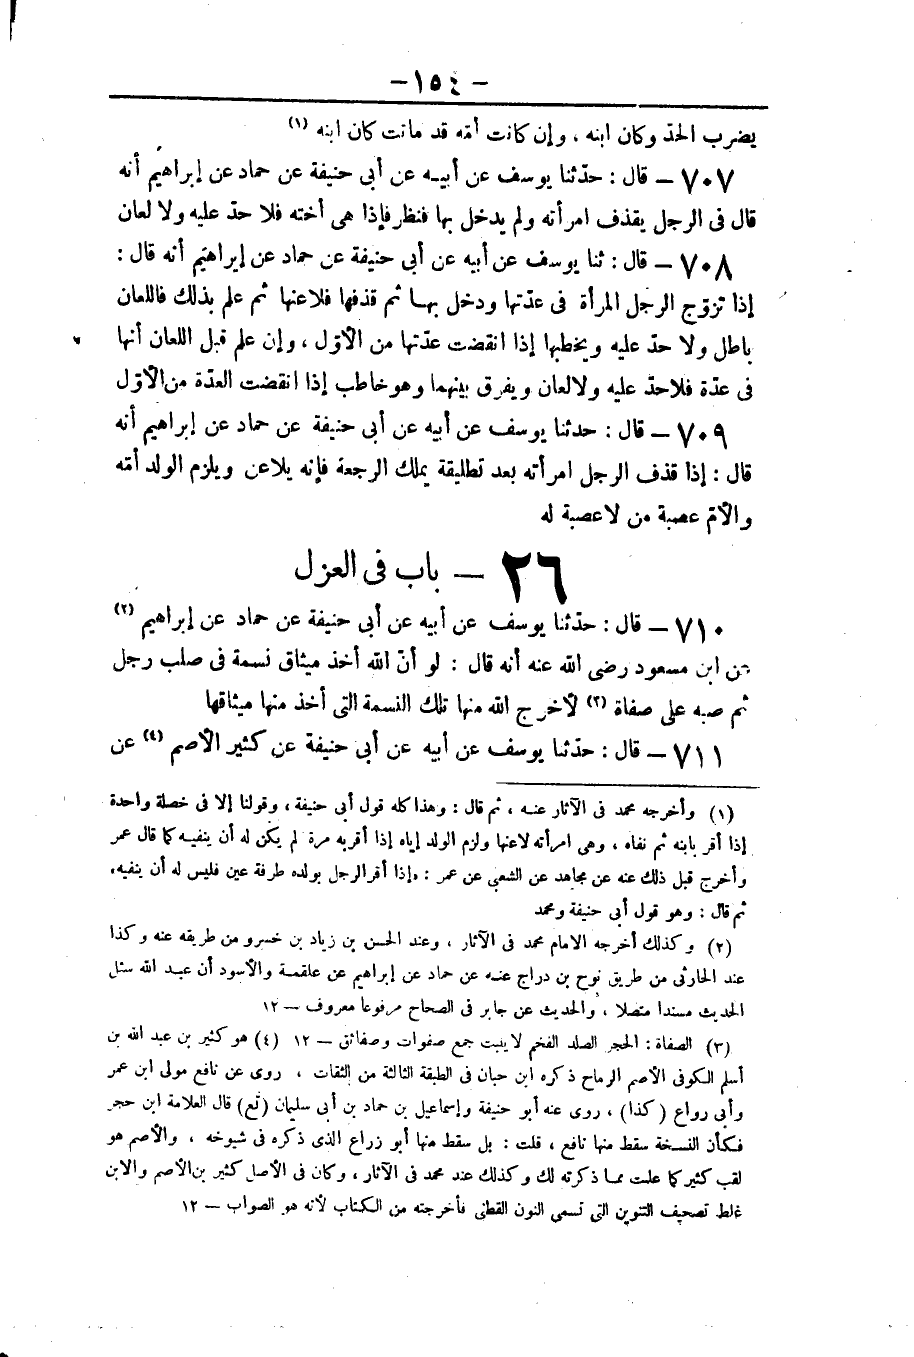 - ١٥٤ -
يضرب الحدّ وكان ابنه ، وإن كانت أمّه قد ماتت كان ابنه (١)
٧٠٧ – قال : حدّثنا يوسف عن أبيه عن أبى حنيفة عن حماد عن إبراهيم أنه
قال فى الرجل يقذف امرأته ولم يدخل بها فنظر فإذا هى أخته فلا حدّ عليه ولا لعان
٧٠٨ – قال : ثنا يوسف عن أبيه عن أبى حنيفة عن حماد عن إبراهيم أنه قال :
إذا تزوّج الرجل المرأة فى عدّتها ودخل بهـا ثم قذفها فلاعنها ثم علم بذلك فاللعان
باطل ولا حدّ عليه ويخطبها إذا انقضت عدّتها من الأوّل ، وإن علم قبل اللعان أنها
فى عدّة فلا حدّ عليه ولا لعان ويفرق بينهما وهو خاطب إذا انقضت العدّة من الأوّل
٧٠٩ – قال : حدثنا يوسف عن أبيه عن أبى حنيفة عن حماد عن إبراهيم أنه
قال : إذا قذف الرجل امرأته بعد تطليقة يملك الرجعة فإنه يلاعن ويلزم الولد أمّه
والأمّ عصبة من لا عصبة له
٢٦ – باب فى العزل
٧١٠ – قال : حدّثنا يوسف عن أبيه عن أبى حنيفة عن حماد عن إبراهيم (٢)
عن ابن مسعود رضى الله عنه أنه قال : لو أنّ الله أخذ ميثاق نسمة فى صلب رجل
ثم صبه على صفاة (٣) لأخرج الله منها تلك النسمة التى أخذ منها ميثاقها
٧١١ – قال : حدّثنا يوسف عن أبيه عن أبى حنيفة عن كثير الأصم (٤) عن
(١) وأخرجه محمد فى الآثار عنـه ، ثم قال : وهذا كله قول أبى حنيفة ، وقولنا إلا فى خصلة واحدة
إذا أقر بابنه ثم نفاه ، وهى امرأته لاعنها ولزم الولد إياه إذا أقر به مرة لم يكن له أن ينفيـه كما قال عمر
وأخرج قبل ذلك عنه عن مجاهد عن الشعبى عن عمر : «إذا أقر الرجل بولده طرفة عين فليس له أن ينفيه»
ثم قال : وهو قول أبى حنيفة ومحمد
(٢) وكذلك أخرجه الامام محمد فى الآثار ، وعند الحسن بن زياد بن خسرو من طريقه عنه وكذا
عند الحارثى من طريق نوح بن دراج عنـه عن حماد عن إبراهيم عن علقمـة والأسود أن عبـد الله سئل
الحديث مسندا متصلا ، والحديث عن جابر فى الصحاح مرفوعا معروف – ١٢
(٣) الصفاة : الحجر الصلد الضخم لا ينبت جمع صفوات وصفائق – ١٢ (٤) هو كثير بن عبد الله بن
أسلم الكوفى الأصم الرماح ذكره ابن حبان فى الطبقة الثالثة من الثقات ، روى عن نافع مولى ابن عمر
وأبى رواع (كذا) ، روى عنه أبو حنيفة وإسماعيل بن حماد بن أبى سليمان (تع) قال العلامة ابن حجر
فكأن النسخة سقط منها نافع ، قلت : بل سقط منها أبو زراع الذى ذكره فى شيوخه ، والأصم هو
لقب كثير كما علمت ممـا ذكرته لك وكذلك عند محمد فى الآثار ، وكان فى الأصل كثير بن الأصم والابن
غلط تصحيف التنوين التى تسمى النون القطنى فأخرجته من الكتاب لأنه هو الصواب – ١٢